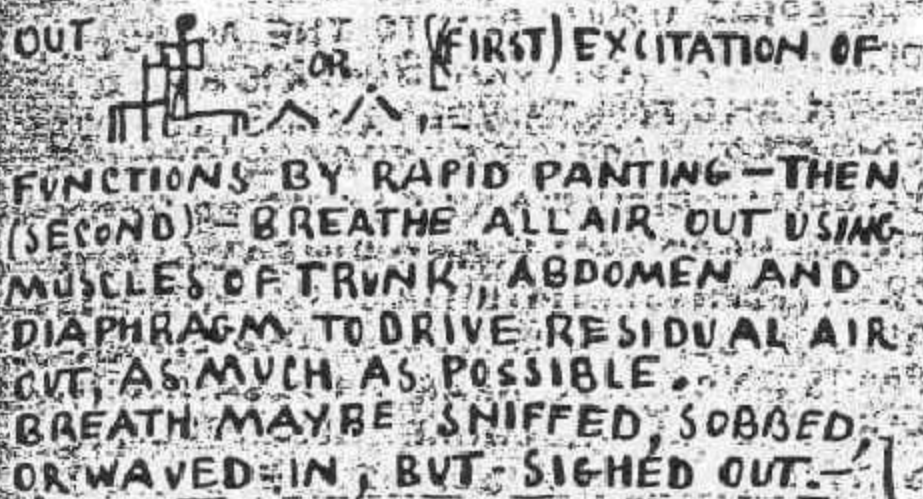 OUT OR [(FIRST) EXCITATION OF
FUNCTIONS BY RAPID PANTING — THEN
(SECOND) — BREATHE ALL AIR OUT USING
MUSCLES OF TRUNK, ABDOMEN AND
DIAPHRAGM TO DRIVE RESIDUAL AIR
OUT, AS MUCH AS POSSIBLE.
BREATH MAY BE SNIFFED, SOBBED,
OR WAVED IN, BUT SIGHED OUT.—]